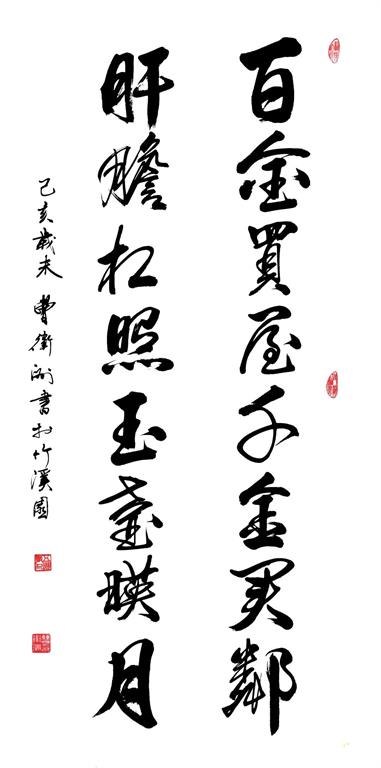 百金買屋千金買鄰
肝膽相照玉壺暎月
己亥歲末 曹衛洲書於竹溪園